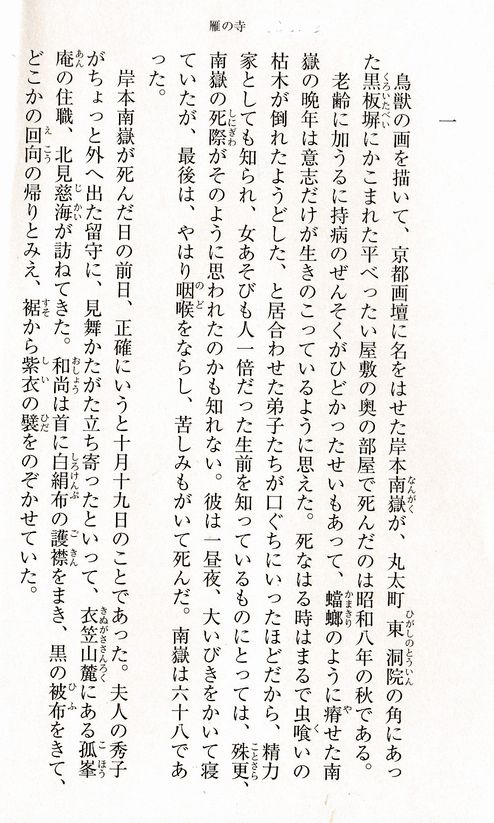 雁の寺
一
鳥獣の画を描いて、京都画壇に名をはせた岸本南嶽が、丸太町東洞院の角にあっ
た黒板塀にかこまれた平べったい屋敷の奥の部屋で死んだのは昭和八年の秋である。
老齢に加うるに持病のぜんそくがひどかったせいもあって、蟷螂のように瘠せた南
嶽の晩年は意志だけが生きのこっているように思えた。死なはる時はまるで虫喰いの
枯木が倒れたようどした、と居合わせた弟子たちが口ぐちにいったほどだから、精力
家としても知られ、女あそびも人一倍だった生前を知っているものにとっては、殊更、
南嶽の死際がそのように思われたのかも知れない。彼は一昼夜、大いびきをかいて寝
ていたが、最後は、やはり咽喉をならし、苦しみもがいて死んだ。南嶽は六十八であ
った。
岸本南嶽が死んだ日の前日、正確にいうと十月十九日のことであった。夫人の秀子
がちょっと外へ出た留守に、見舞かたがた立ち寄ったといって、衣笠山麓にある孤峯
庵の住職、北見慈海が訪ねてきた。和尚は首に白絹布の護襟をまき、黒の被布をきて、
どこかの回向の帰りとみえ、裾から紫衣の襞をのぞかせていた。